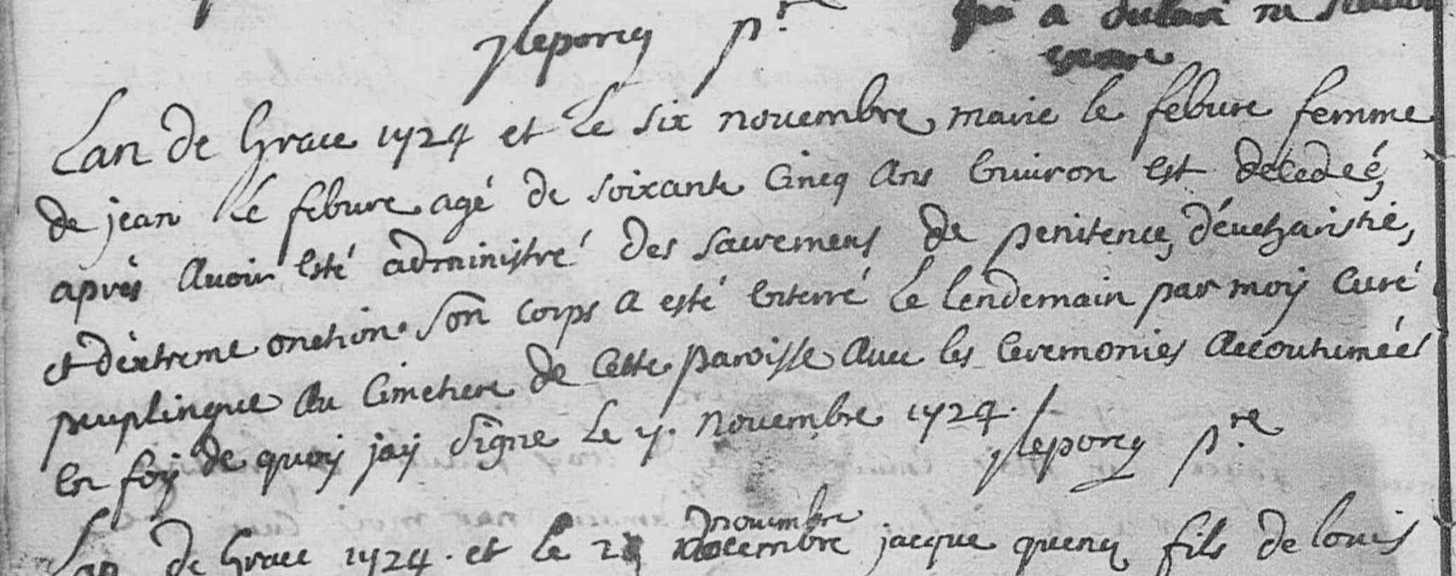 qui a declaré ne
Jleporcq p.re
Lan de Grace 1724 et Le six novembre marie le febure femme
de jean Le febure agé de soixante Cincq Ans Environ est decedeé
aprés Avoir Esté administré des sacremens de penitence, d'éucharistié,
et d'éxtreme onction. Son corps a esté Enterré Le Lendemain par moij Curé
peuplingue Au Cimetiere de Cette paroisse Avec les Ceremonies Accoutumées
En foij de quoij jaij Signe Le 7. novembre 1724. Jleporcq p.re
novembre
Lan de Grace 1724. et Le decembre jacque quenq fils de louis